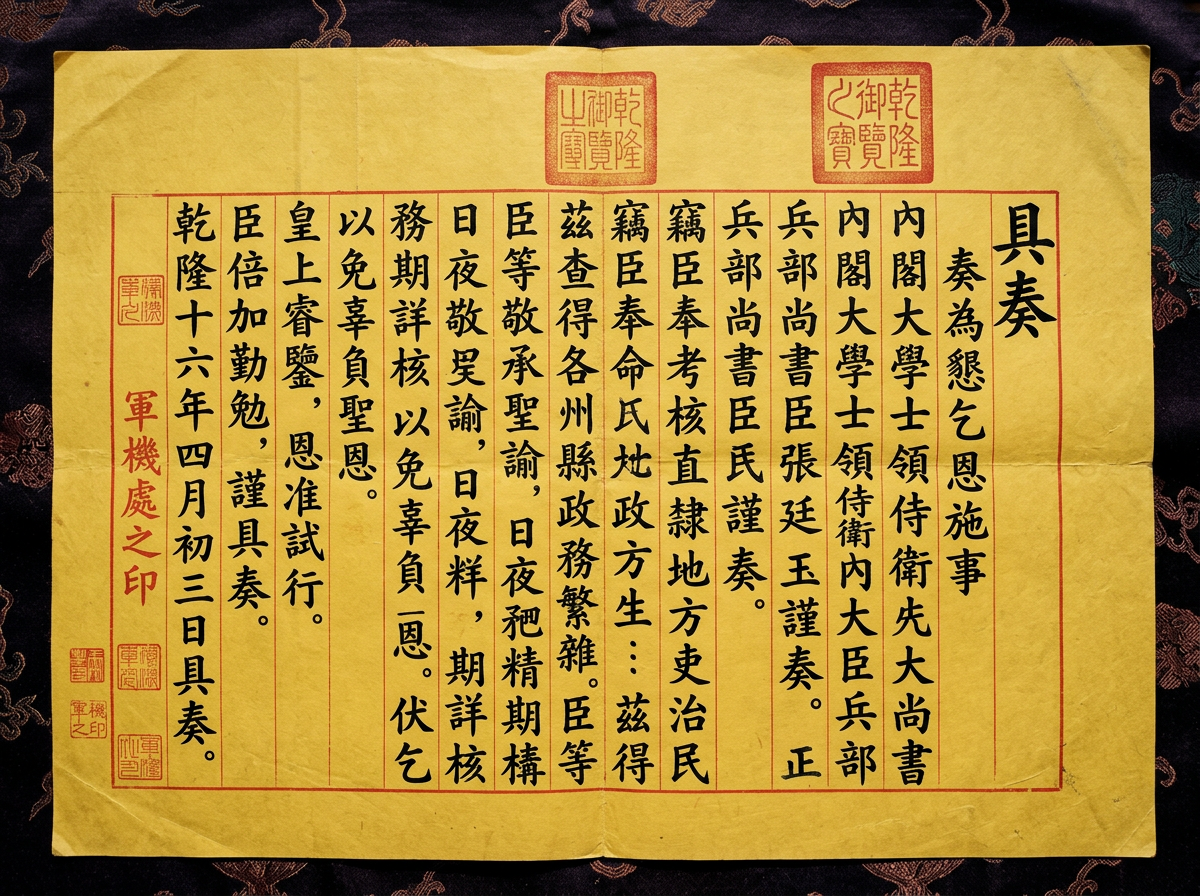 乾隆御覽之寶
乾隆御覽之寶
具奏
奏為懇乞恩施事
內閣大學士領侍衛先大尚書
內閣大學士領侍衛內大臣兵部
兵部尚書臣張廷玉謹奏。 正
兵部尚書臣民謹奏。
竊臣奉考核直隸地方吏治民
竊臣奉命氏地政方生…茲得
茲查得各州縣政務繁雜。臣等
臣等敬承聖諭,日夜 精期構
日夜敬 諭,日夜 ,期詳核
務期詳核以免辜負一恩。伏乞
以免辜負聖恩。
皇上睿鑒,恩准試行。
臣倍加勤勉,謹具奏。
乾隆十六年四月初三日具奏。
軍機處之印